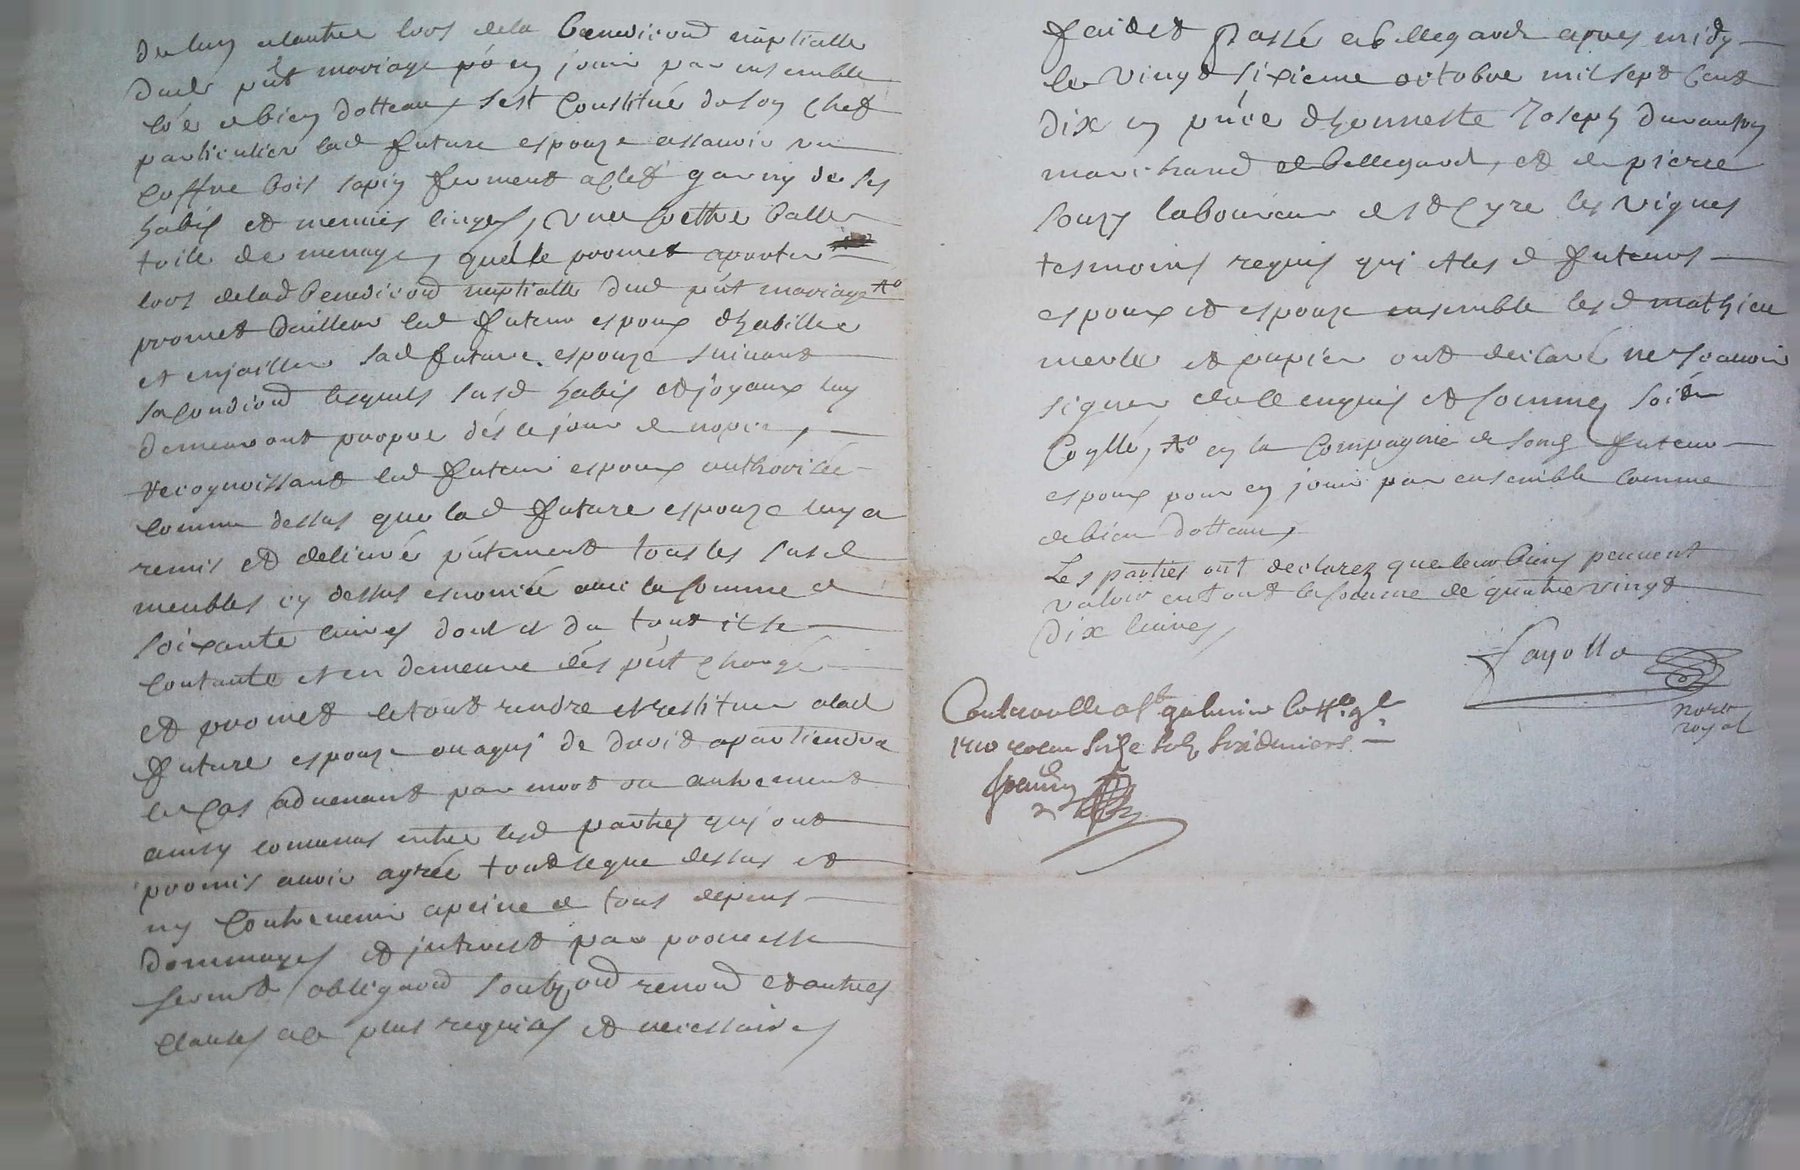 de luy a lautre lors de la benediction nuptialle
dud pñt mariage po en jouir par ensemble
co͞e de bien dottaux sest constitué de son chef
particulier lad future espouze assavoir un
coffre bois sapin fermant a clef garny de ses
habis et menuis linges, une
toile de menage quelle promet aporter
lors de lad benediction nuptialle dud pñt mariage Ao
promet dailleur led futeur espoux dhabiller
et enjoailler sad future espouze suivant
sa condiond lesquels susd habis et joyaux luy
demeureront propre dés le jour de nopces,
recognoissant led futeur espoux authorisé
comme dessus que lad future espouze luy a
remis et delivré pñtement tous les susd
meubles cy dessus esnoncée avec la somme de
soixante livres dont et du tout il se
contante et en demeure dés pñt chargé
et promet le tout rendre et restituer a lad
future espouze ou a qui de droit apartiendra
le cas advenant par mort ou autrement
ainsy convenus entre lesd parties qui ont
promis avoir agrée tout le que dessus et
ny contrevenir a peine de tous depens
dommages et interest par promesse
serment obligaond soubzond renond et autres
clauses a ce plus requises et necessaires
fait et passé a bellegarde apres midy
le vingt sixieme octobre mil sept cent
dix en pñce dhonneste Joseph Duranson
marchand de bellegarde, et de pierre
Souzy laboureur de st Cyre les vignes
tesmoins requis qui et lesd futeurs
espoux et espouze ensemble lesd mathieu
merle et papier ont declaré ne scavoir
signer de ce enquis et sommez soit
Coyllé, Ao en la compagnie de sond futeur
espoux pour en jouir par ensemble comme
de bien dottaux
Les parties ont declarez que leur biens peuvent
valoir en tout la somme de quatre vingt
dix livres,
Fayolle
nore
royal
Controollé a st galmier le 1er 9bre
1710 receu seize solz six deniers